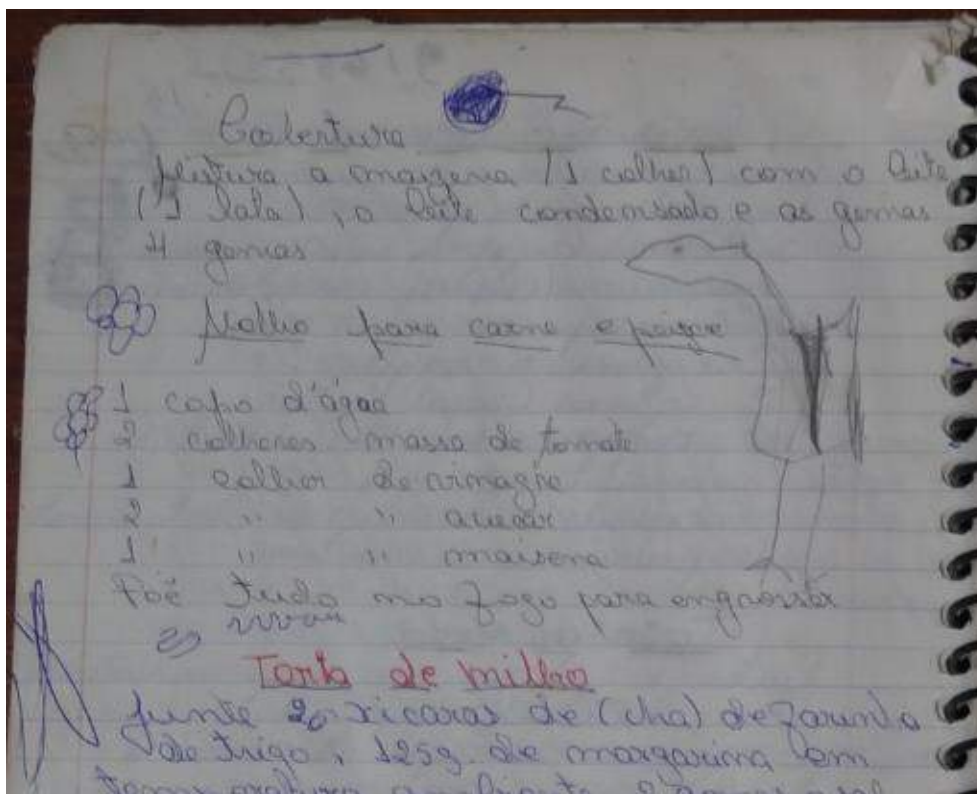 Cobertura
Mistura a maizena (1 colher) com o leite
(1 lata), o leite condensado e as gemas
4 gemas
Molho para carne e peixe
1 copo d'água
2 colheres massa de tomate
1 colher de vinagre
2 " " açucar
1 " " maisena
Poê tudo no fogo para engrossar
Torta de milho
Junte 20 xicaras de (cha) de farinha
de trigo, 125g. de margarina em
temperatura ambiente